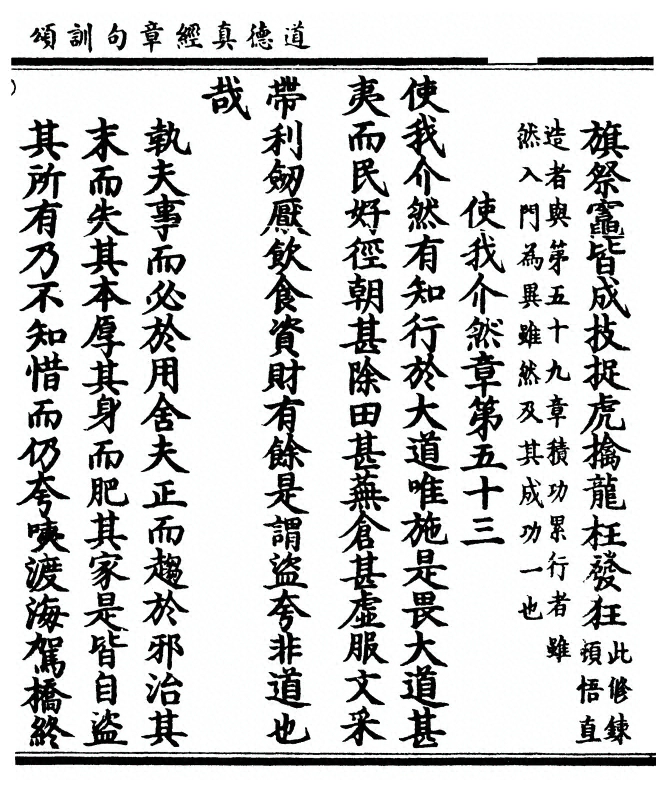 道德真經章句訓頌
旗祭竈皆成技捉虎擒龍枉發狂此修鍊頓悟直
造者與第五十九章積功累行者雖
然入門為異雖然及其成功一也
使我介然章第五十三
使我介然有知行於大道唯施是畏大道甚
夷而民好徑朝甚除田甚蕪倉甚虛服文采
帶利劒厭飲食資財有餘是謂盜夸非道也
哉
執夫事而必於用舍夫正而趨於邪治其
末而失其本厚其身而肥其家是皆自盜
其所有乃不知惜而仍夸咦渡海駕橋終